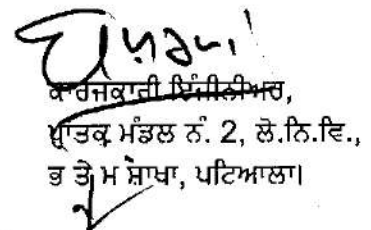 ਕਾਰਜਕਾਰੀ ਇੰਜੀਨੀਅਰ,
ਪ੍ਰਾਂਤਕ ਮੰਡਲ ਨੰ. 2, ਲੋ.ਨਿ.ਵਿ.,
ਭ ਤੇ ਮ ਸ਼ਾਖਾ, ਪਟਿਆਲਾ।